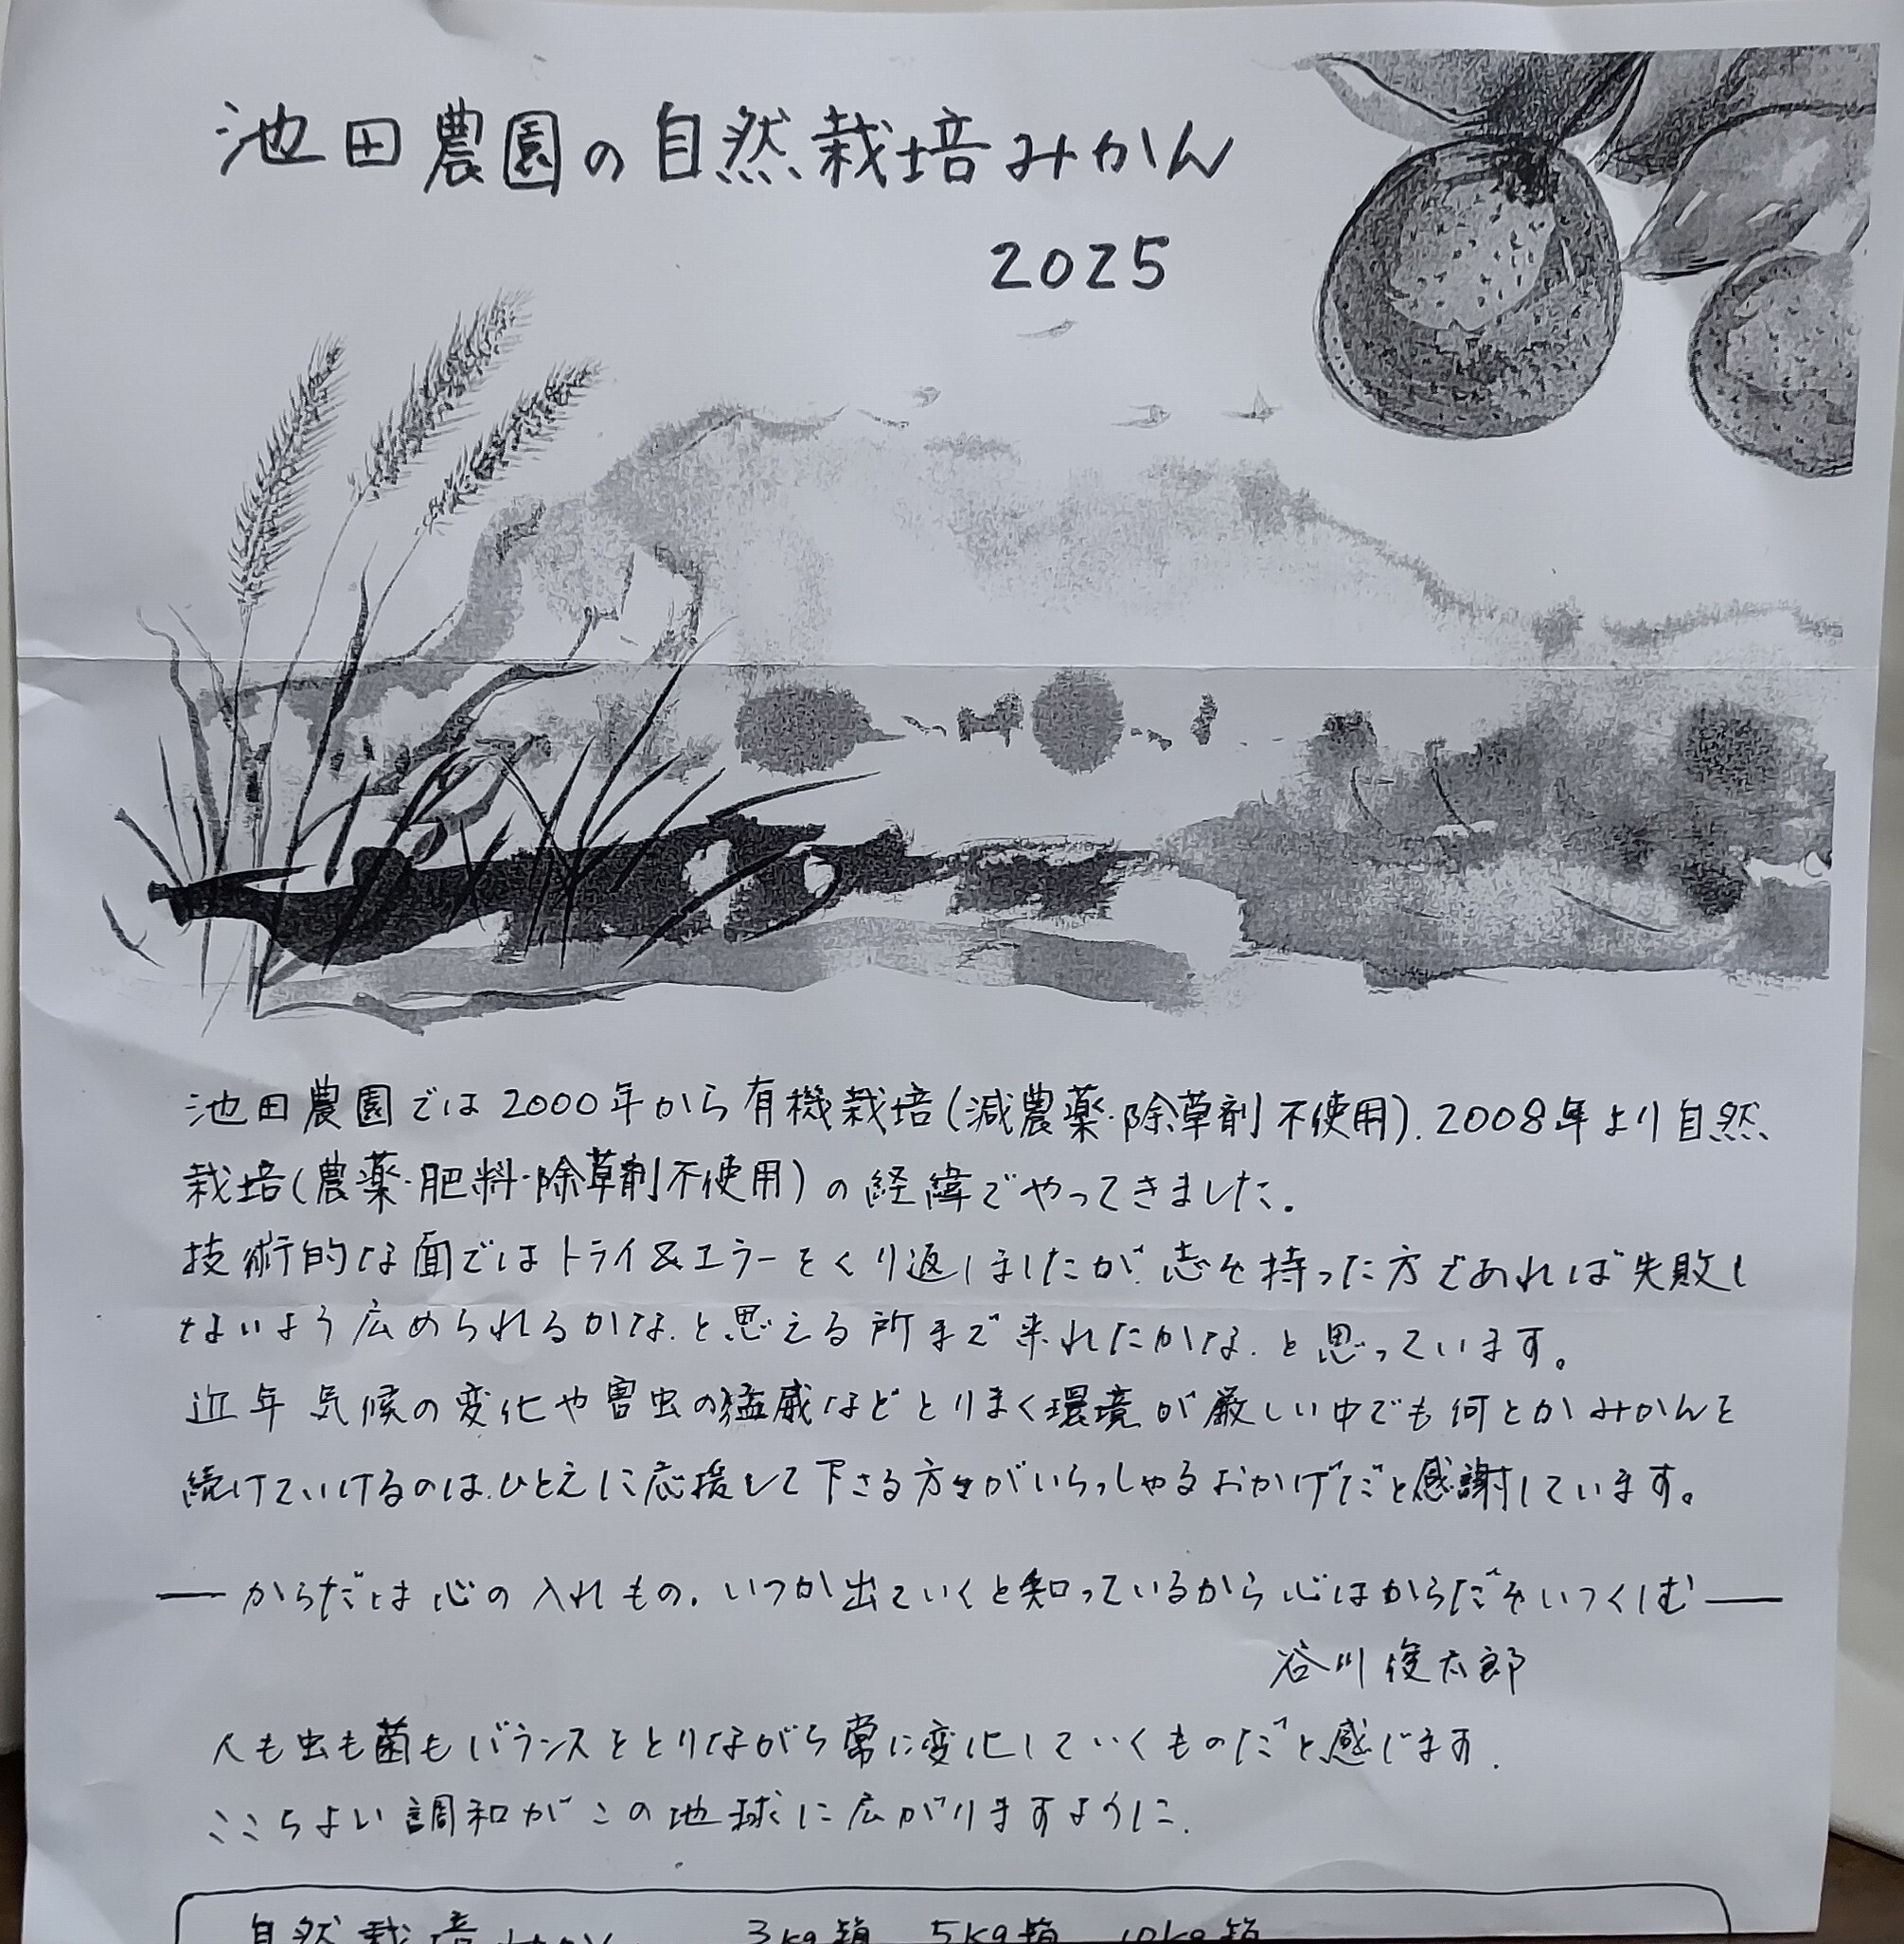 池田農園の自然栽培みかん
2025
池田農園では2000年から有機栽培(減農薬・除草剤不使用).2008年より自然
栽培(農薬・肥料・除草剤不使用)の経緯でやってきました.
技術的な面ではトライ&エラーをくり返しましたが.志を持った方であれば失敗し
ないよう広められるかな.と思える所まで来れたかな.と思っています。
近年気候の変化や害虫の猛威などとりまく環境が厳しい中でも何とかみかんを
続けていけるのは.ひとえに応援して下さる方々がいらっしゃるおかげだと感謝しています。
― からだは心の入れもの.いつか出ていくと知っているから心はからだをいつくしむ ―
谷川俊太郎
人も虫も菌もバランスをとりながら常に変化していくものだと感じます.
こころよい調和がこの地球に広がりますように.
自然栽培みかん 3kg箱 5kg箱 10kg箱